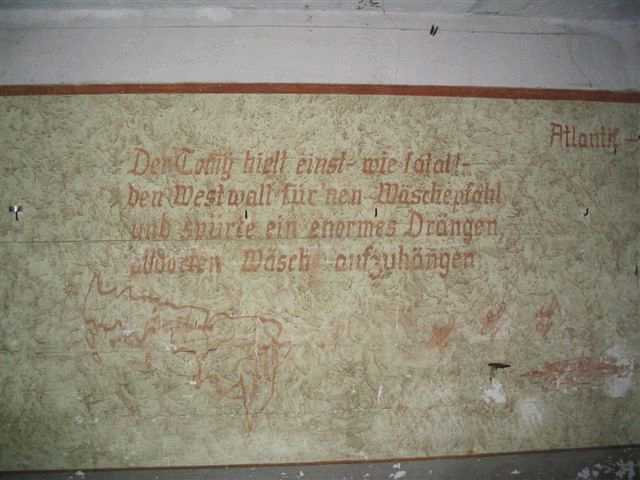 Der Tomy hielt einst - wie fatal! -
den Westwall für'nen Wäschepfahl
und spürte ein enormes Drängen
alldorten Wäsch aufzuhängen
Atlantik -